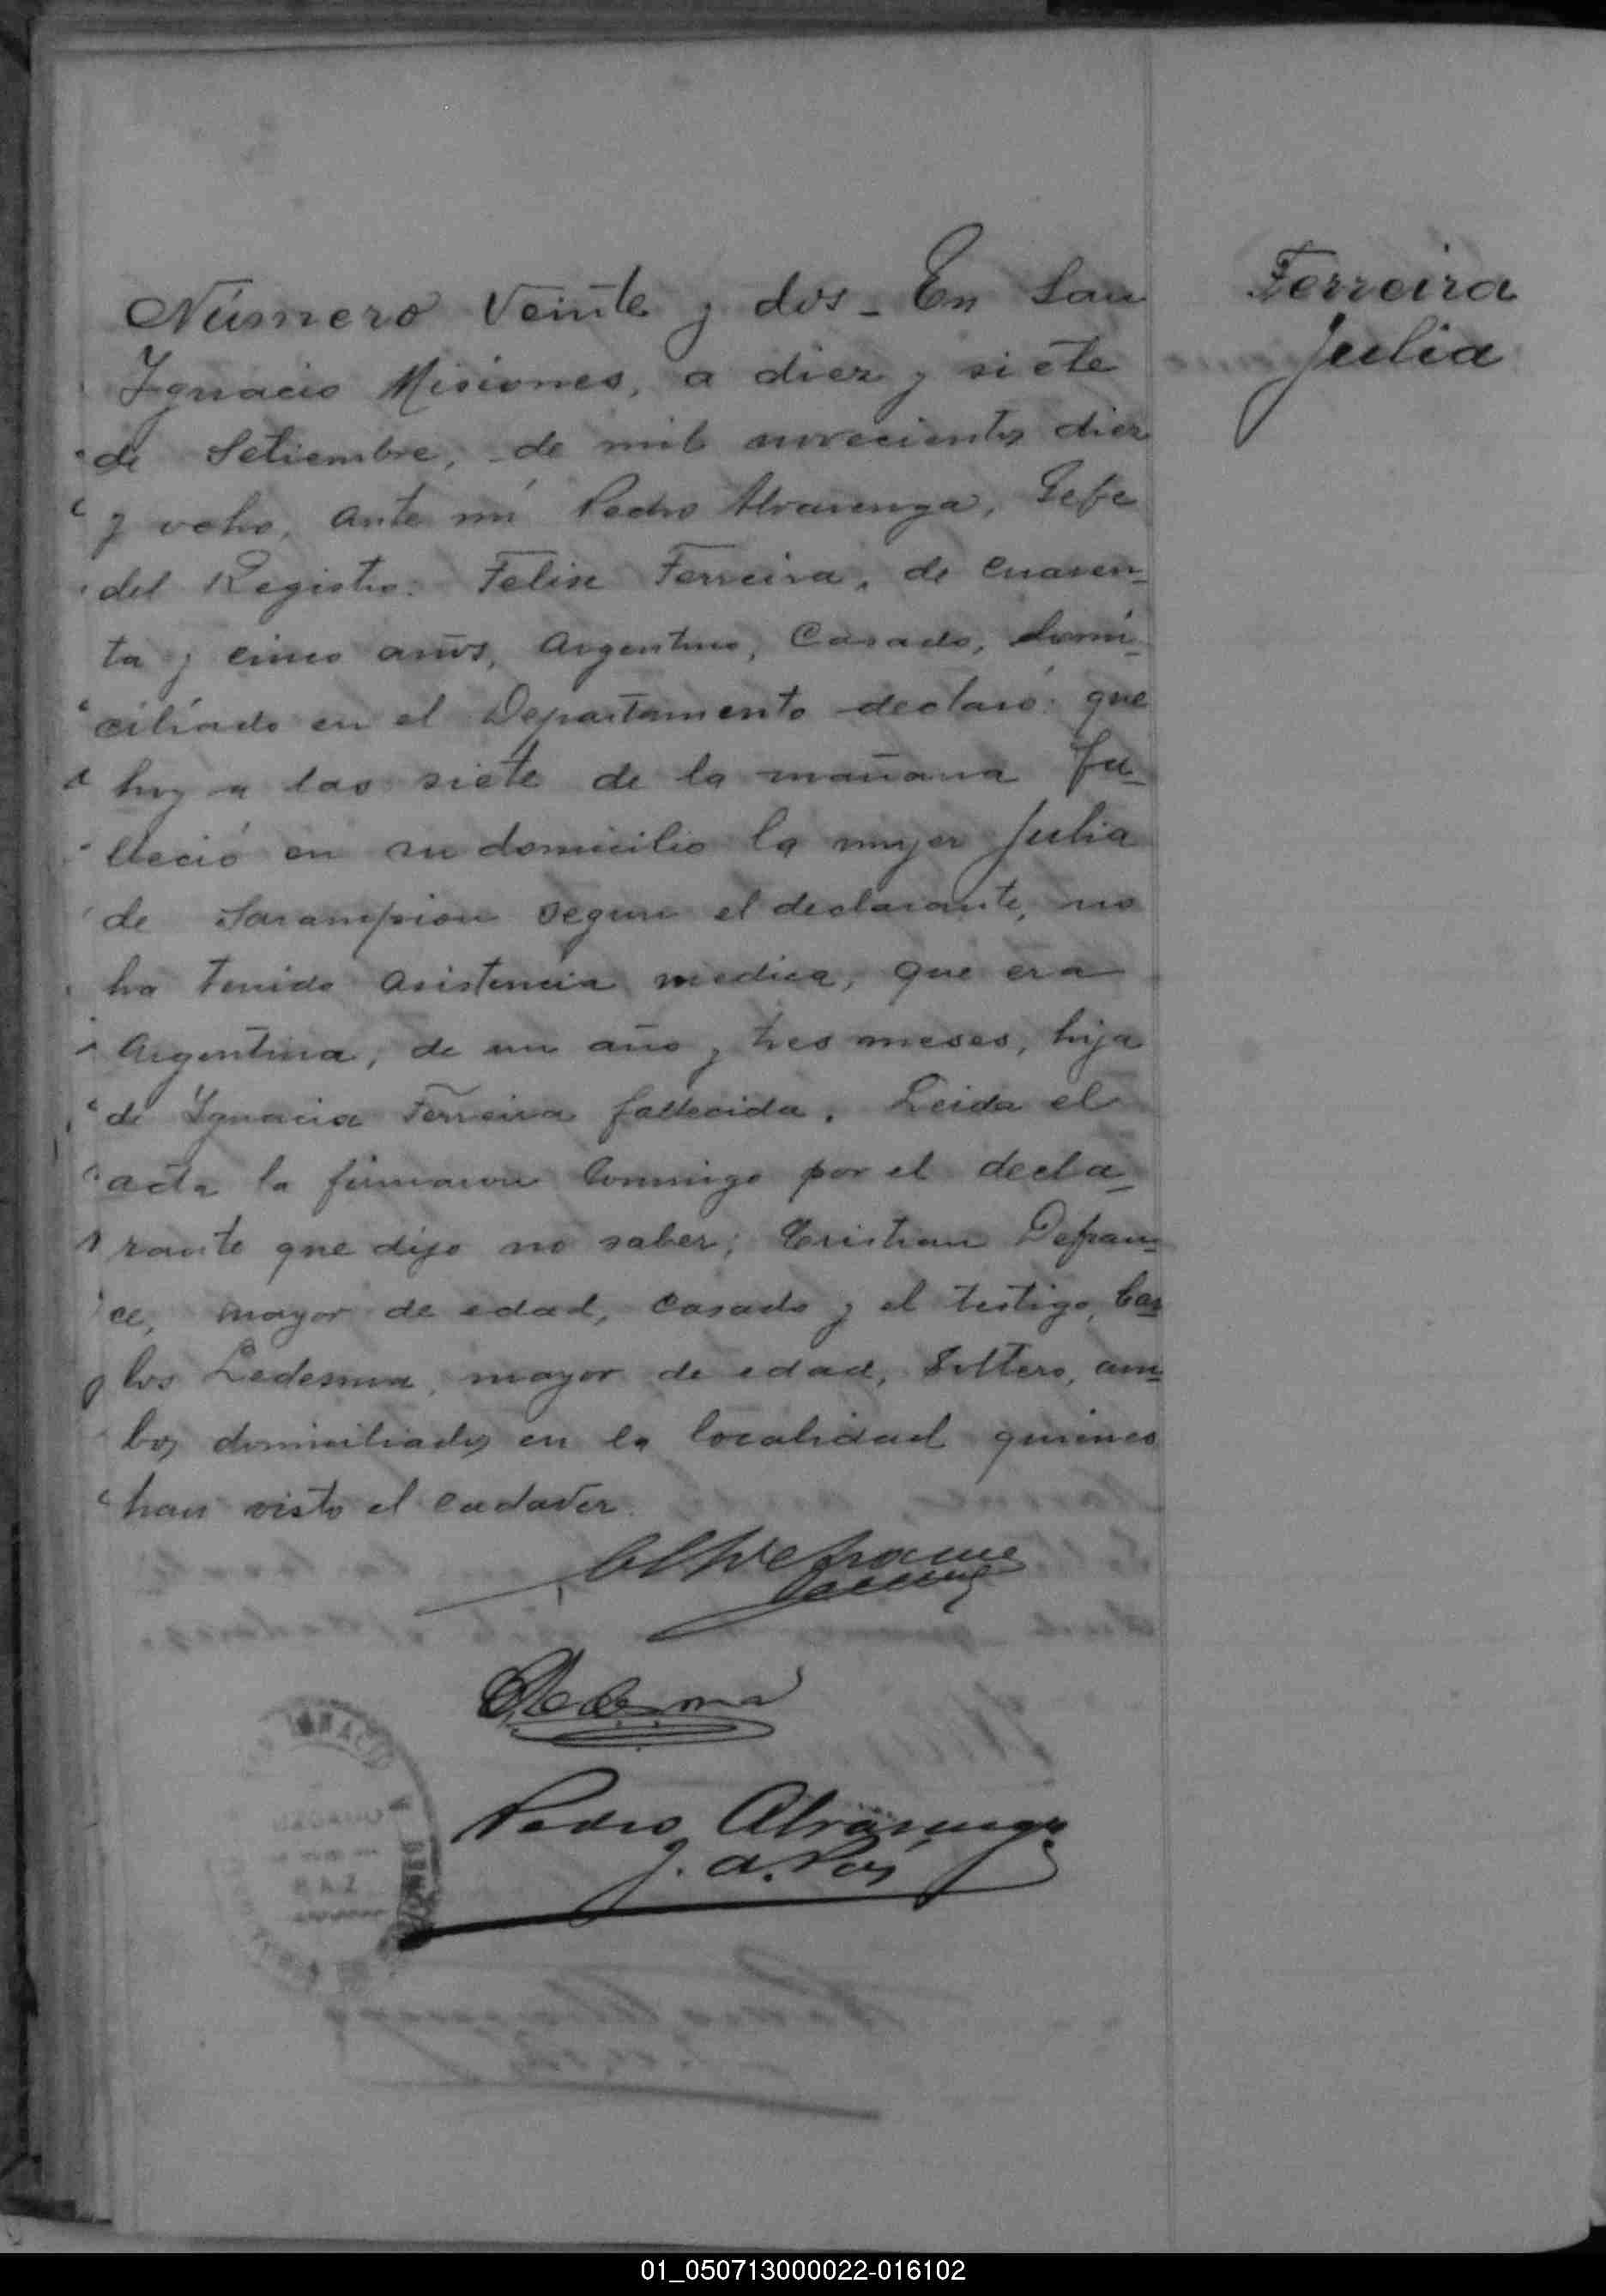 Número Veinte y dos - En San
Ignacio Misiones, a diez y siete
de Setiembre, de mil novecientos diez
y ocho, ante mí Pedro Alvarenga, Gefe
del Registro: Felise Ferreira, de cuaren-
ta y cinco años, Argentino, Casado, domi-
ciliado en el Departamento declaró: que
hoy a las siete de la mañana fa-
lleció en su domicilio la mujer Julia
de Sarampion segun el declarante, no
ha tenido asistencia medica, que era
Argentina, de un año y tres meses, hija
de Ignacia Ferreira fallecida. Leida el
acta la firmaron Conmigo por el decla-
rante que dijo no saber; Cristian Defran-
ce, mayor de edad, casado y el testigo, Car
los Ledesma, mayor de edad, Soltero, am-
bos domiciliados en la localidad quienes
han visto el cadaver.
Ferreira
Julia
CLedesma
Pedro Alvarenga
IGNACIO
01_050713000022-016102